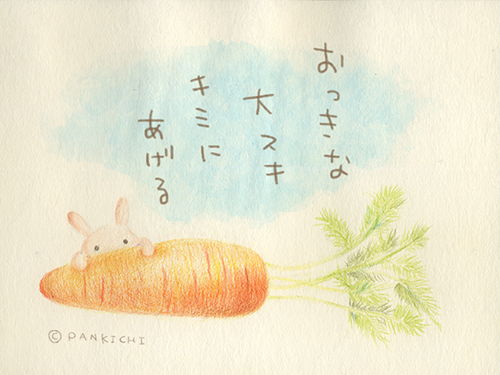 おっきな
大スキ
キミに
あげる
© PANKICHI